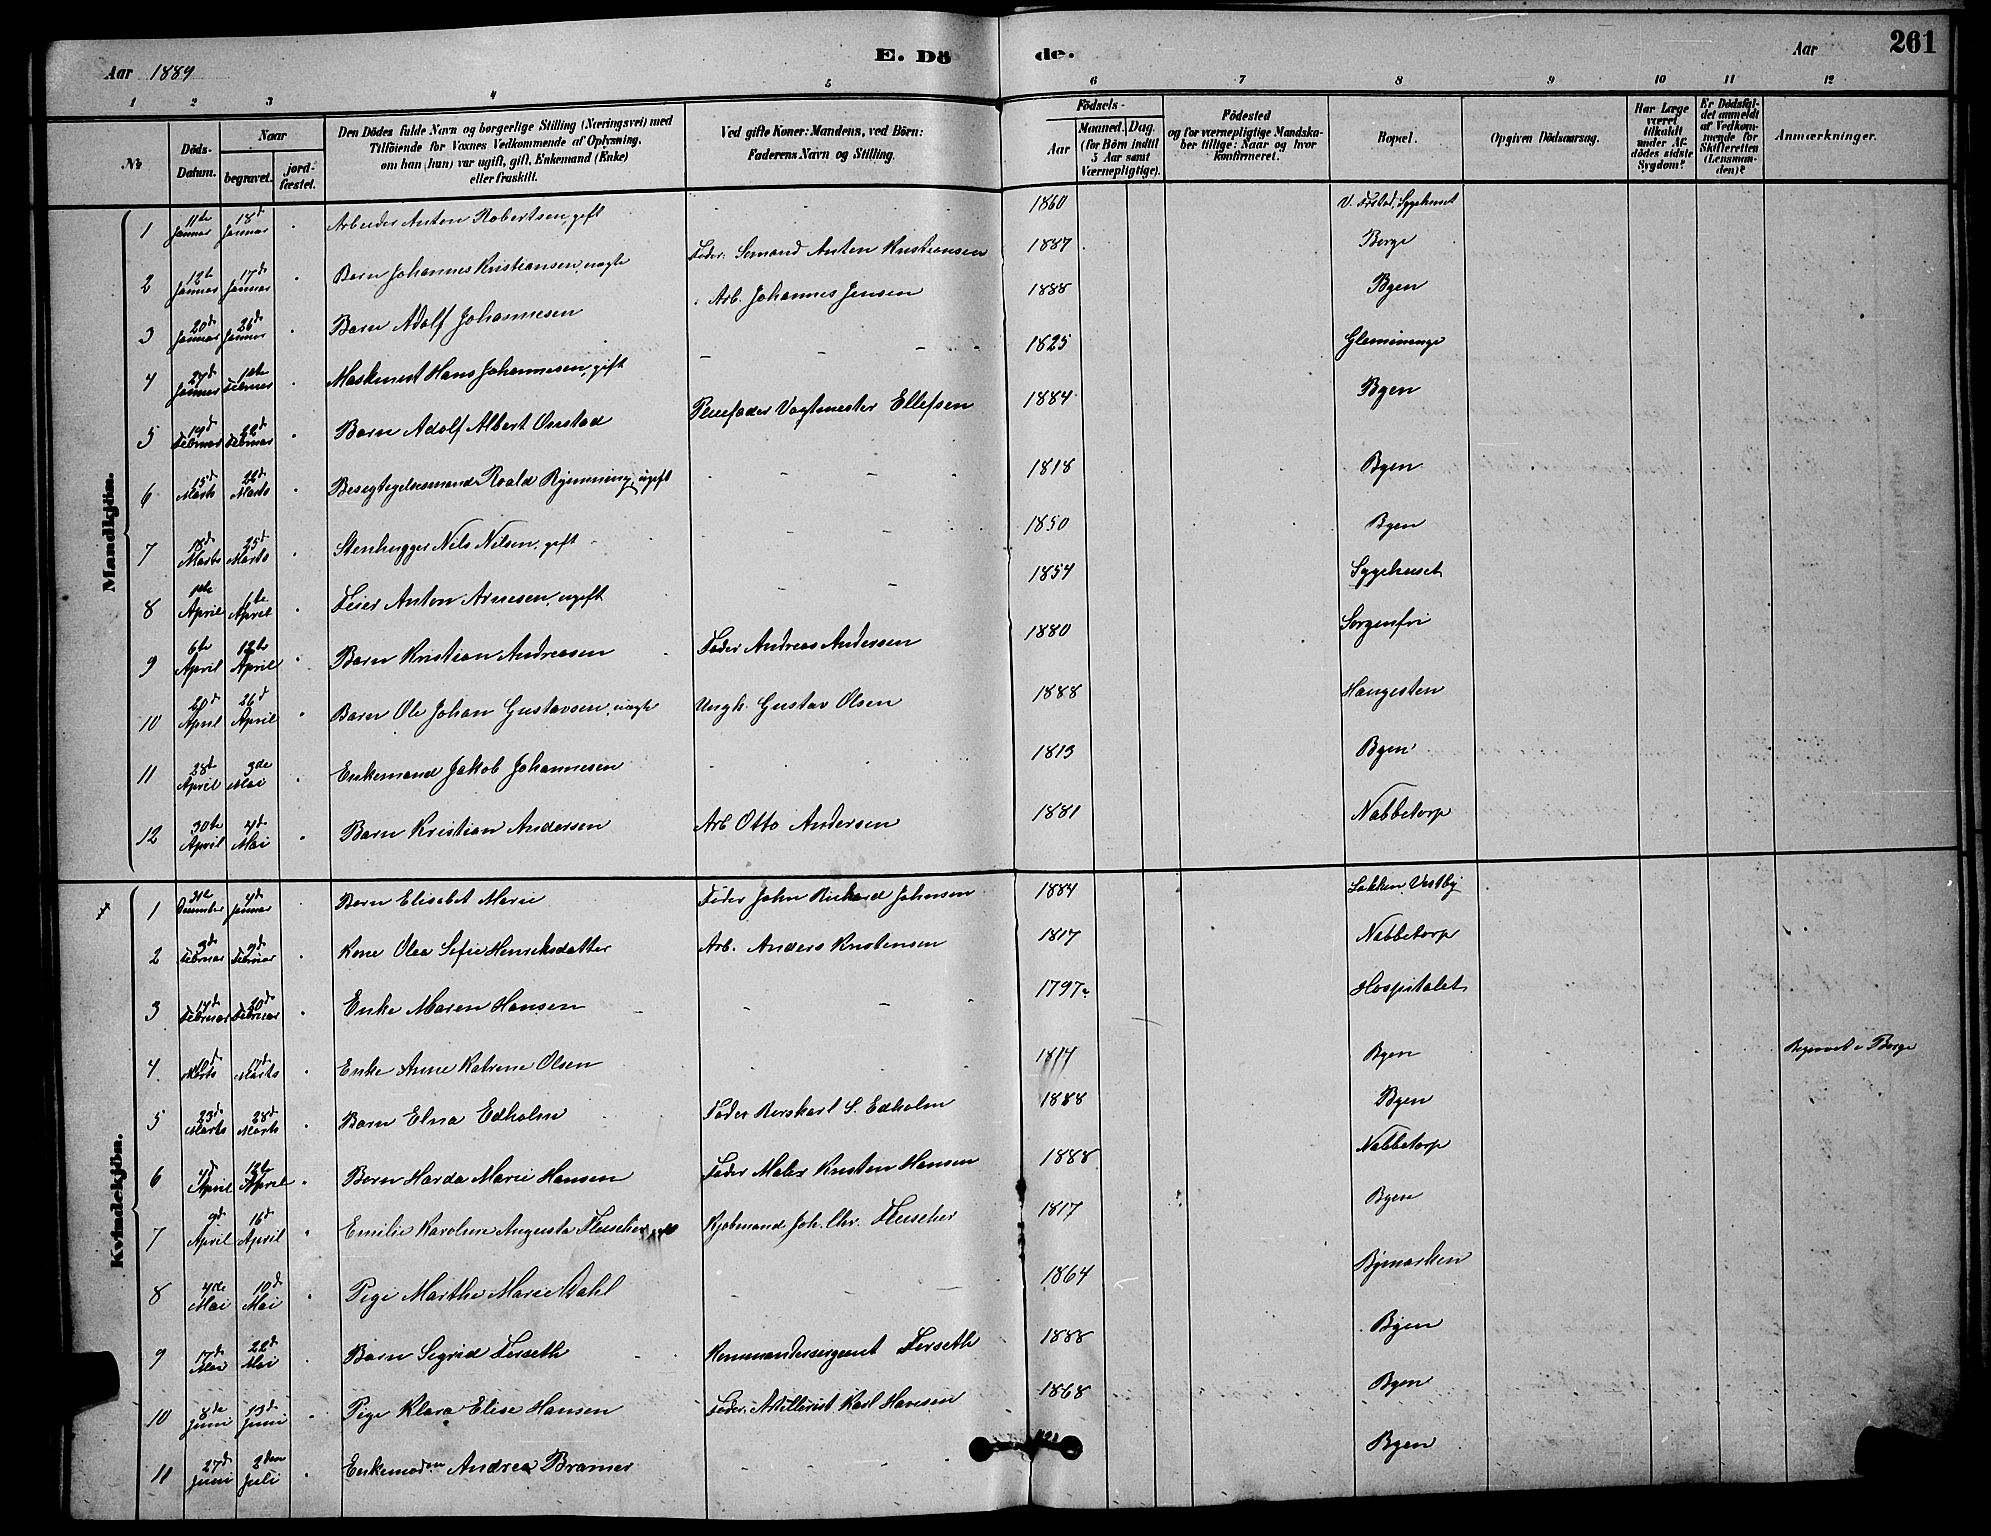 E. Dö de.
261
Aar 1889
Aar
1 2 3 4 5 6 7 8 9 10 11 12
№
Döds-Datum.
Naar
begravet.
jord-fæstet.
Den Dödes fulde Navn og borgerlige Stilling (Næringsvei) med
Tilföiende for Voxnes Vedkommende af Oplysning,
om han (hun) var ugift, gift, Enkemand (Enke)
eller fraskilt.
Ved gifte Koner: Mandens, ved Börn:
Faderens Navn og Stilling.
Födsels-
Aar
Maaned. Dag.
(for Börn indtil
5 Aar samt
Værnepligtige).
Födested
og for værnepligtige Mandska-
ber tillige: Naar og hvor
konfirmeret.
Bopæl.
Opgiven Dödsaarsag.
Har Læge
været
tilkaldt
under Af-
dödes sidste
Sygdom?
Er Dödsfal-
det anmeldt
af Vedkom-
mende for
Skifteretten
(Lensman-
den)?
Anmærkninger.
Mandkjön.
1 11te Januar 18de Januar Arbeider Anton Robertsen, gift 1860 Sygehuset
2 12te Januar 17de Januar Barn Johannes Kristiansen, uægte Fader: Sømand Anton Kristiansen 1887 Borge
3 20de Januar 26de Januar Barn Adolf Johannesen Arb. Johannes Jensen 1888 Byen
4 27de Januar 1ste Februar Maskinist Hans Johannesen, gift 1825 Glemminge
5 14de Februar 22de Februar Barn Adolf Albert Onstad Pleiefader Vagtmester Ellefsen 1884 Byen
6 15de Marts 22de Marts Roald Rynning, ugift 1818 Byen
7 18de Marts 25de Marts Stenhugger Nils Nilsen, gift 1850 Byen
8 1ste April 1te April Feier Anton Arnesen, ugift 1854 Sygehuset
9 6te April 12te April Barn Kristian Andreasen Fader Andreas Andersen 1880 Sorgenfri
10 20de April 26de April Barn Ole Johan Gustavsen, uægte Ungk. Gustav Olsen 1888 Haugesten
11 28de April 3die Mai Enkemand Jakob Johannesen 1813 Byen
12 30te April 4de Mai Barn Kristian Andersen Arb Otto Andersen 1881 Nabbetorp
Kvindekjön.
1 31te December 4de Januar Barn Elisabet Marie Fader John Rickard Johnsen 1884 Løkken Vestby
2 3de Februar 9de Februar Kone Olea Sofie Henriksdatter Arb. Anders Kristensen 1817 Nabbetorp
3 14de Februar 20de Februar Enke Maren Hansen 1797 Hospitalet
4 Marts 17de Marts Enke Anne Katrine Olsen 1814 Byen Begravet i Borge
5 23de Marts 28de Marts Barn Elna Edholm Fader Rørskarl S. Edholm 1888 Byen
6 4de April 12te April Barn Harda Marie Hansen Fader Maler Kristen Hansen 1888 Nabbetorp
7 9de April 16de April Emilie Karoline Augusta Fleischer Kjøbmand Joh. Chr. Fleischer 1817 Byen
8 4de Mai 10de Mai Pige Marthe Marie Dahl 1864 Bymarken
9 17de Mai 22de Mai Barn Sigrid Forseth Kommandersergeant Forseth 1888 Byen
10 8de Juni 13de Juni Pige Klara Elise Hansen Fader: Artillerist Karl Hansen 1868 Byen
11 27de Juni 2den Juli Andrea Bramer Byen